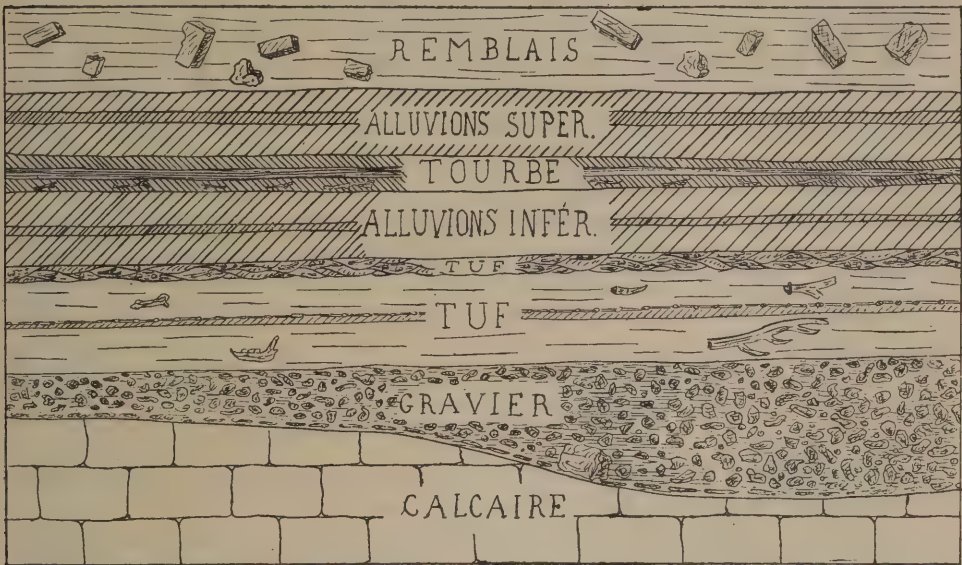 REMBLAIS
ALLUVIONS SUPER.
TOURBE
ALLUVIONS INFÉR.
TUF
TUF
GRAVIER
CALCAIRE